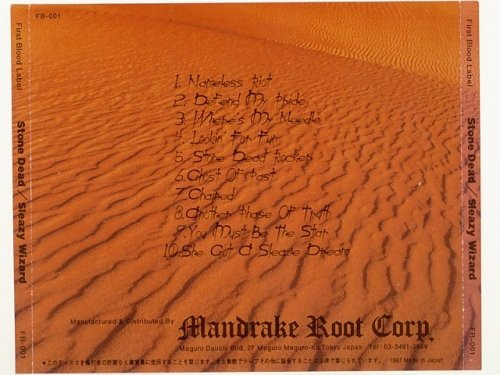 FB-001
First Blood Label
Stone Dead / Sleazy Wizard
FB-001
1. Nameless Riot
2. Defend My Pride
3. Where's My Needle
4. Lookin' For Fun
5. Stone Dead Rocker
6. Ghost Of Past
7. Chained
8. Another Phase Of
9. You Must Be The Star
10. She Got A Sleazie Dream
Manufactured & Distributed By
Mandrake Root Corp.
Meguro-Daiichi Bild. 2F Meguro.Meguro-Ku.Tokyo Japan Tel : 03-3491-2869
1997 Made in Japan
First Blood Label
Stone Dead / Sleazy Wizard
FB-001